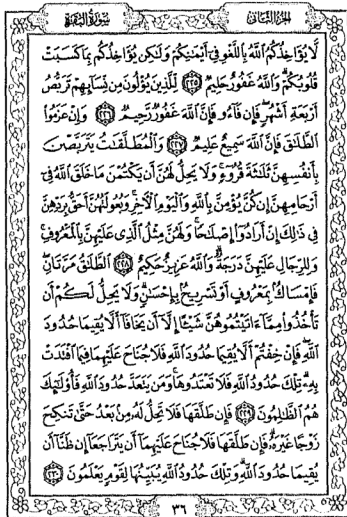 الجزء الثاني
سورة البقرة
لَّا يُؤَاخِذُكُمُ اللَّهُ بِاللَّغْوِ فِي أَيْمَانِكُمْ وَلَٰكِن يُؤَاخِذُكُم بِمَا كَسَبَتْ
قُلُوبُكُمْ وَاللَّهُ غَفُورٌ حَلِيمٌ ٢٢٥ لِّلَّذِينَ يُؤْلُونَ مِن نِّسَائِهِمْ تَرَبُّصُ
أَرْبَعَةِ أَشْهُرٍ فَإِن فَاءُو فَإِنَّ اللَّهَ غَفُورٌ رَّحِيمٌ ٢٢٦ وَإِنْ عَزَمُوا
الطَّلَاقَ فَإِنَّ اللَّهَ سَمِيعٌ عَلِيمٌ ٢٢٧ وَالْمُطَلَّقَاتُ يَتَرَبَّصْنَ
بِأَنفُسِهِنَّ ثَلَاثَةَ قُرُوءٍ وَلَا يَحِلُّ لَهُنَّ أَن يَكْتُمْنَ مَا خَلَقَ اللَّهُ فِي
أَرْحَامِهِنَّ إِن كُنَّ يُؤْمِنَّ بِاللَّهِ وَالْيَوْمِ الْآخِرِ وَبُعُولَتُهُنَّ أَحَقُّ بِرَدِّهِنَّ
فِي ذَٰلِكَ إِنْ أَرَادُوا إِصْلَاحًا وَلَهُنَّ مِثْلُ الَّذِي عَلَيْهِنَّ بِالْمَعْرُوفِ
وَلِلرِّجَالِ عَلَيْهِنَّ دَرَجَةٌ وَاللَّهُ عَزِيزٌ حَكِيمٌ ٢٢٨ الطَّلَاقُ مَرَّتَانِ
فَإِمْسَاكٌ بِمَعْرُوفٍ أَوْ تَسْرِيحٌ بِإِحْسَانٍ وَلَا يَحِلُّ لَكُمْ أَن
تَأْخُذُوا مِمَّا آتَيْتُمُوهُنَّ شَيْئًا إِلَّا أَن يَخَافَا أَلَّا يُقِيمَا حُدُودَ
اللَّهِ فَإِنْ خِفْتُمْ أَلَّا يُقِيمَا حُدُودَ اللَّهِ فَلَا جُنَاحَ عَلَيْهِمَا فِيمَا افْتَدَتْ
بِهِ تِلْكَ حُدُودُ اللَّهِ فَلَا تَعْتَدُوهَا وَمَن يَتَعَدَّ حُدُودَ اللَّهِ فَأُولَٰئِكَ
هُمُ الظَّالِمُونَ ٢٢٩ فَإِن طَلَّقَهَا فَلَا تَحِلُّ لَهُ مِن بَعْدُ حَتَّىٰ تَنكِحَ
زَوْجًا غَيْرَهُ فَإِن طَلَّقَهَا فَلَا جُنَاحَ عَلَيْهِمَا أَن يَتَرَاجَعَا إِن ظَنَّا أَن
يُقِيمَا حُدُودَ اللَّهِ وَتِلْكَ حُدُودُ اللَّهِ يُبَيِّنُهَا لِقَوْمٍ يَعْلَمُونَ ٢٣٠
٣٦